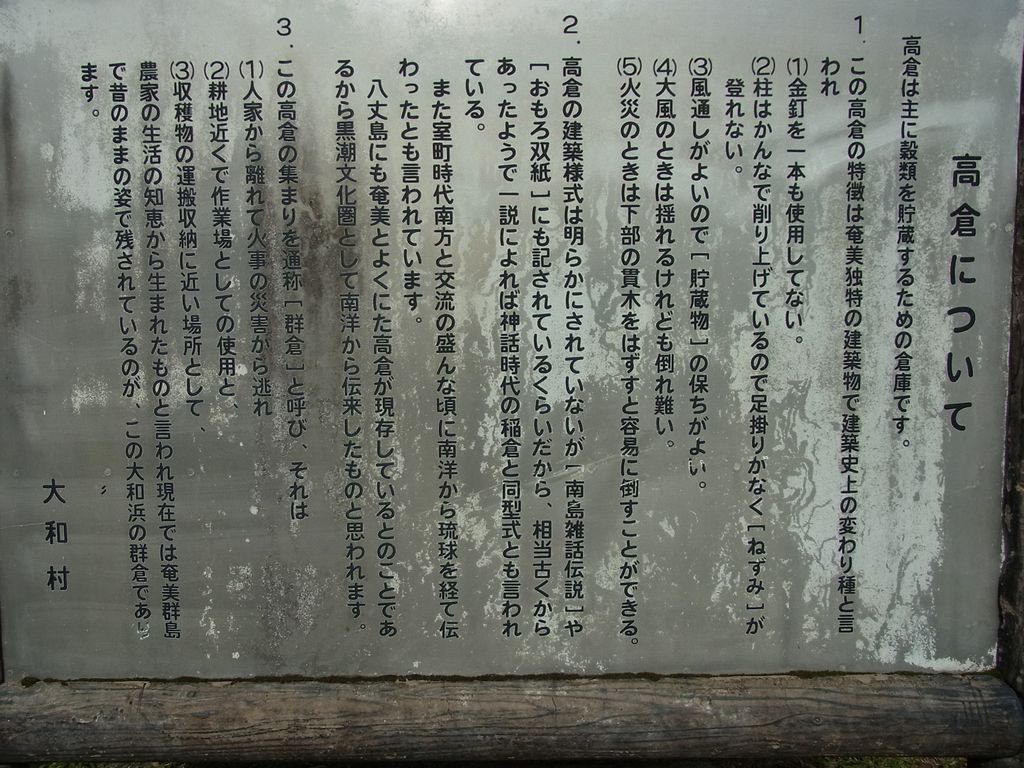 高倉について
高倉は主に穀類を貯蔵するための倉庫です。
1. この高倉の特徴は奄美独特の建築物で建築史上の変わり種と言
われ
(1)金釘を一本も使用してない。
(2)柱はかんなで削り上げているので足掛りがなく[ねずみ]が
登れない。
(3)風通しがよいので[貯蔵物]の保ちがよい。
(4)大風のときは揺れるけれども倒れ難い。
(5)火災のときは下部の貫木をはずすと容易に倒すことができる。
2. 高倉の建築様式は明らかにされていないが[南島雑話伝説]や
[おもろ双紙]にも記されているくらいだから、相当古くから
あったようで一説によれば神話時代の稲倉と同型式とも言われ
ている。
また室町時代南方と交流の盛んな頃に南洋から琉球を経て伝
わったとも言われています。
八丈島にも奄美とよくにた高倉が現存しているとのことであ
るから黒潮文化圏として南洋から伝来したものと思われます。
3. この高倉の集まりを通称[群倉]と呼び、それは
(1)人家から離れて火事の災害から逃れ
(2)耕地近くで作業場としての使用と、
(3)収穫物の運搬収納に近い場所として、
農家の生活の知恵から生まれたものと言われ現在では奄美群島
で昔のままの姿で残されているのが、この大和浜の群倉であり
ます。
大和村